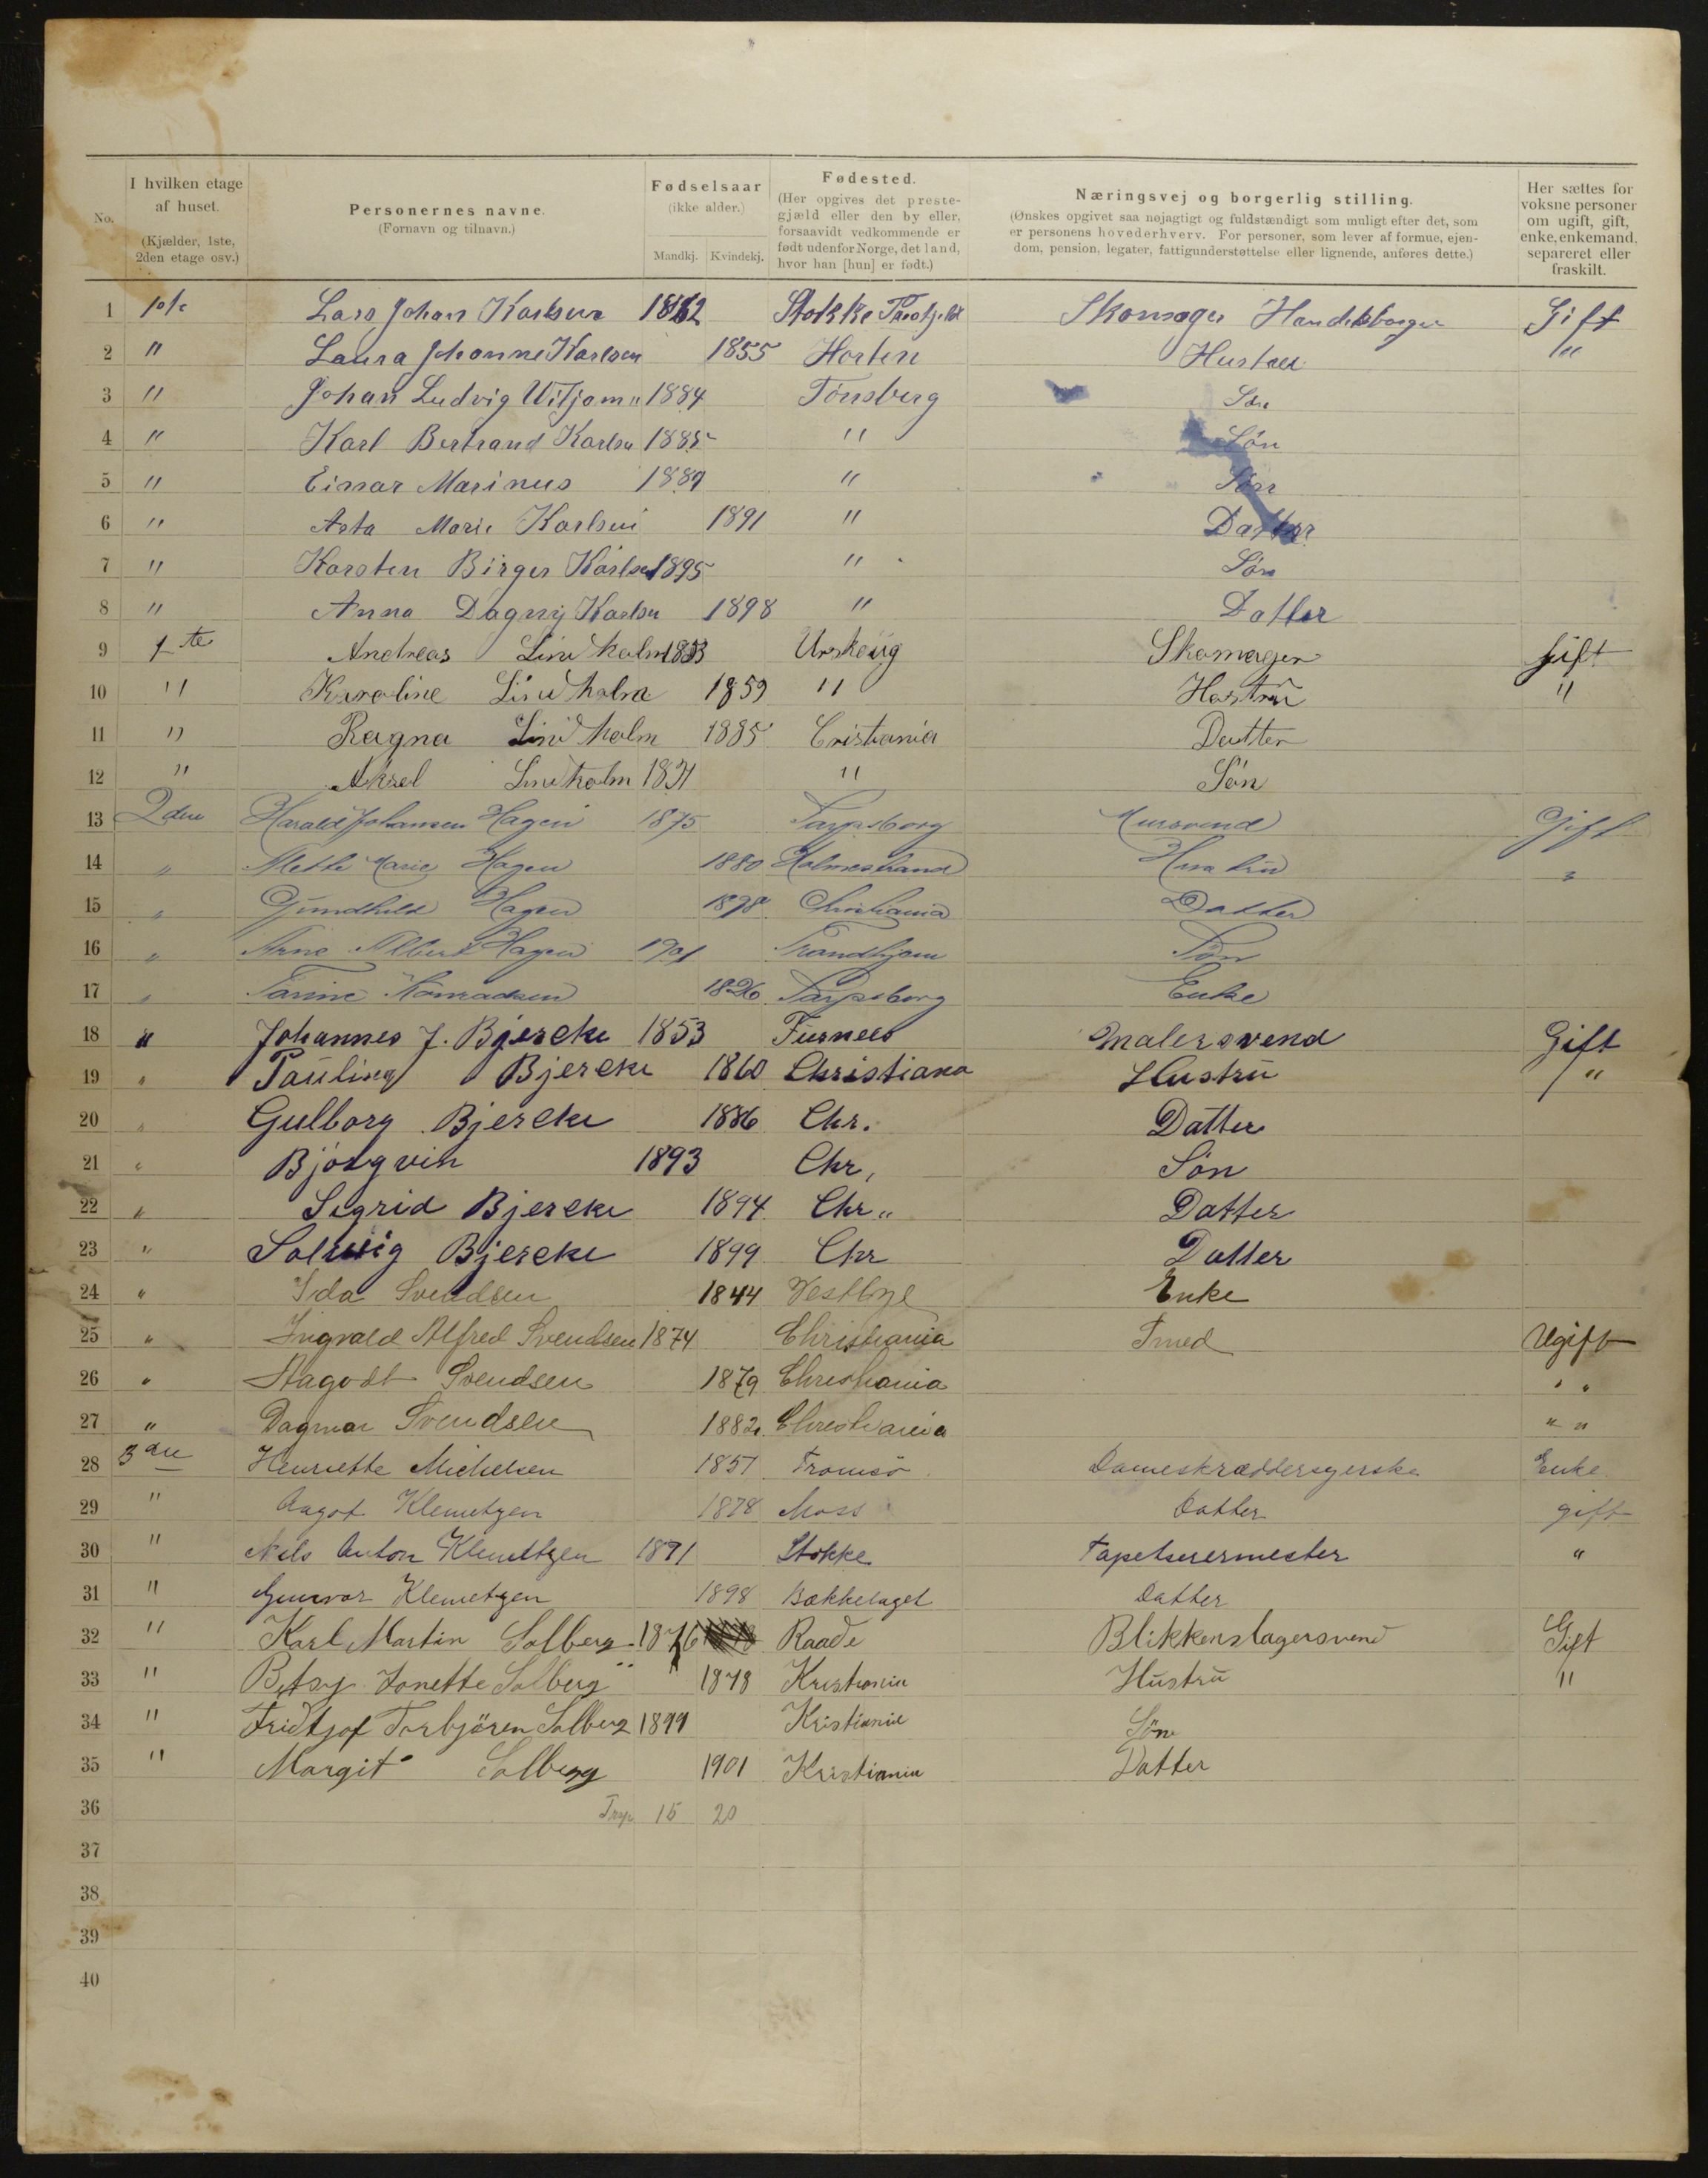 No.
I hvilken etage af huset. (Kjælder, 1ste, 2den etage osv.)
Personernes navne. (Fornavn og tilnavn.)
Fødselsaar (ikke alder.) Mandkj. Kvindekj.
Fødested. (Her opgives det prestegjæld eller den by eller, forsaavidt vedkommende er født udenfor Norge, det land, hvor han [hun] er født.)
Næringsvej og borgerlig stilling. (Ønskes opgivet saa nøjagtigt og fuldstændigt som muligt efter det, som er personens hovederhverv. For personer, som lever af formue, ejendom, pension, legater, fattigunderstøttelse eller lignende, anføres dette.)
Her sættes for voksne personer om ugift, gift, enke, enkemand, separeret eller fraskilt.
1 Lars Johan Karlsen Stokke Skomager Handelsborger Gift
2 " Laura Johanne Karlsen 1855 Horten Hustru "
3 " Johan Ludvig Wiljam " 1884 Tönsberg Sön
4 " Karl Bertrand Karlsen 1885 " Sön
5 " Einar Marinus 1889 " Sön
6 " Asta Marie Karlsen 1891 " Datter
7 " Karsten Birger Karlsen 1895 " Sön
8 " Anna Dagny Karlsen 1898 " Datter
9 1ste Andreas Lindholm Urskoug Skomager Gift
10 " Karoline Lindholm 1859 " Hostru "
11 " Ragna Lindholm 1885 Cristiania Datter
12 " Aksel Lindholm " Sön
13 2den Harald Johansen Hagen 1875 Sarpsborg Mursvend Gift
14 " Mette Marie Hagen 1880 Holmestrand Hustru "
15 " Gundhild Hagen 1898 Christiania Datter
16 " Arne Albert Hagen 1901 Trondhjem Sön
17 " Konradsen 1826 Sarpsborg Enke
18 " Johannes J. Bjercke 1853 Furnes Malersvend Gift
19 " Pauline Bjercke 1860 Christiana Hustru "
20 " Gulborg Bjercke 1886 Chr. Datter
21 " Björgvin 1893 Chr, Sön
22 " Sigrid Bjercke 1894 Chr " Datter
23 " Solveig Bjercke 1899 Chr Datter
24 " Ida Svendsen 1844 Vestbye Enke
25 " Ingvald Alfred Svendsen 1874 Christiania Smed Ugift
26 " Aagodt Svendsen 1879 Christiania " "
27 " Dagmar Svendsen 1882 Christiania " "
28 3die Henriette Michelsen 1851 Tromsö Dameskræddersyerske Enke
29 " Aagot Klemetzen 1878 Moss Datter gift
30 " Nils Anton Klemetzen 1871 Stokke Tapetserermester "
31 " Gunvor Klemetzen 1898 Bækkelaget Datter
32 " Karl Martin Solberg 1876 Raade Blikkenslagersvend Gift
33 " Betsy Jonette Solberg 1878 Kristiania Hustru "
34 " Fridtjof Torbjören Solberg 1899 Kristiania Sön
35 " Margit Solberg 1901 Kristiania Datter
36 15 20
37
38
39
40